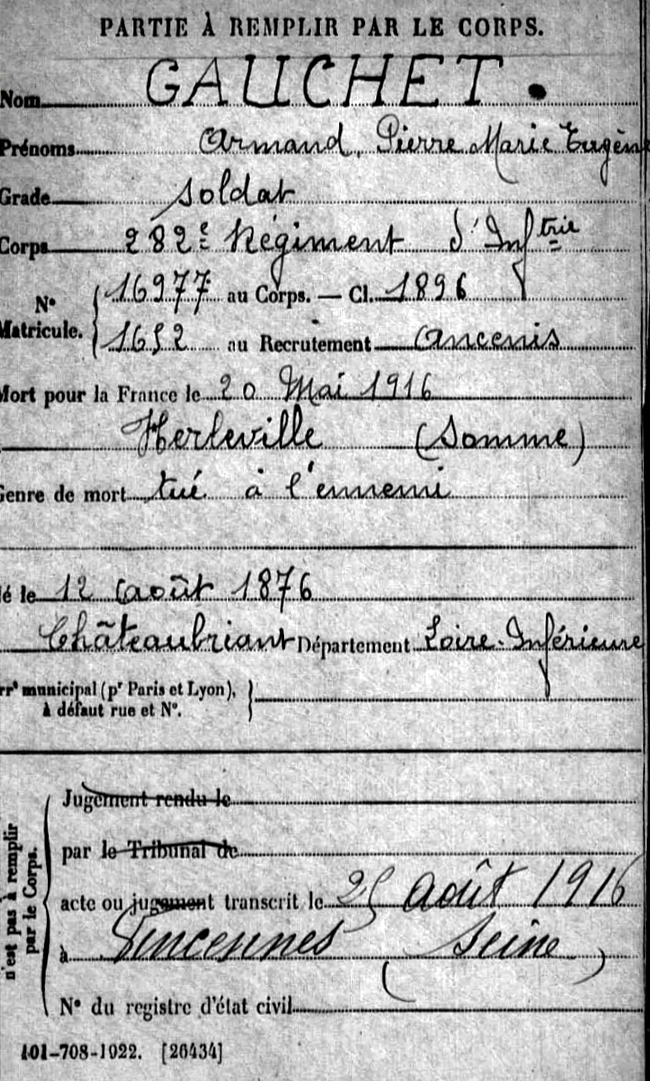 PARTIE À REMPLIR PAR LE CORPS.
Nom GAUCHET.
Prénoms Armand, Pierre Marie Eugèn
Grade Soldat
Corps 282e Régiment d'Inftrie
No Matricule. 16977 au Corps. — Cl. 1896
1652 au Recrutement Ancenis
Mort pour la France le 20 Mai 1916
Herleville (Somme)
Genre de mort tué à l'ennemi
é le 12 août 1876
Châteaubriant Département Loire-Inférieure
rrt municipal (pr Paris et Lyon),
à défaut rue et No.
Jugement rendu le
par le Tribunal de
acte ou jugement transcrit le 25 août 1916
à Vincennes (Seine)
No du registre d'état civil
n'est pas à remplir
par le Corps.
101-708-1922. [26434]